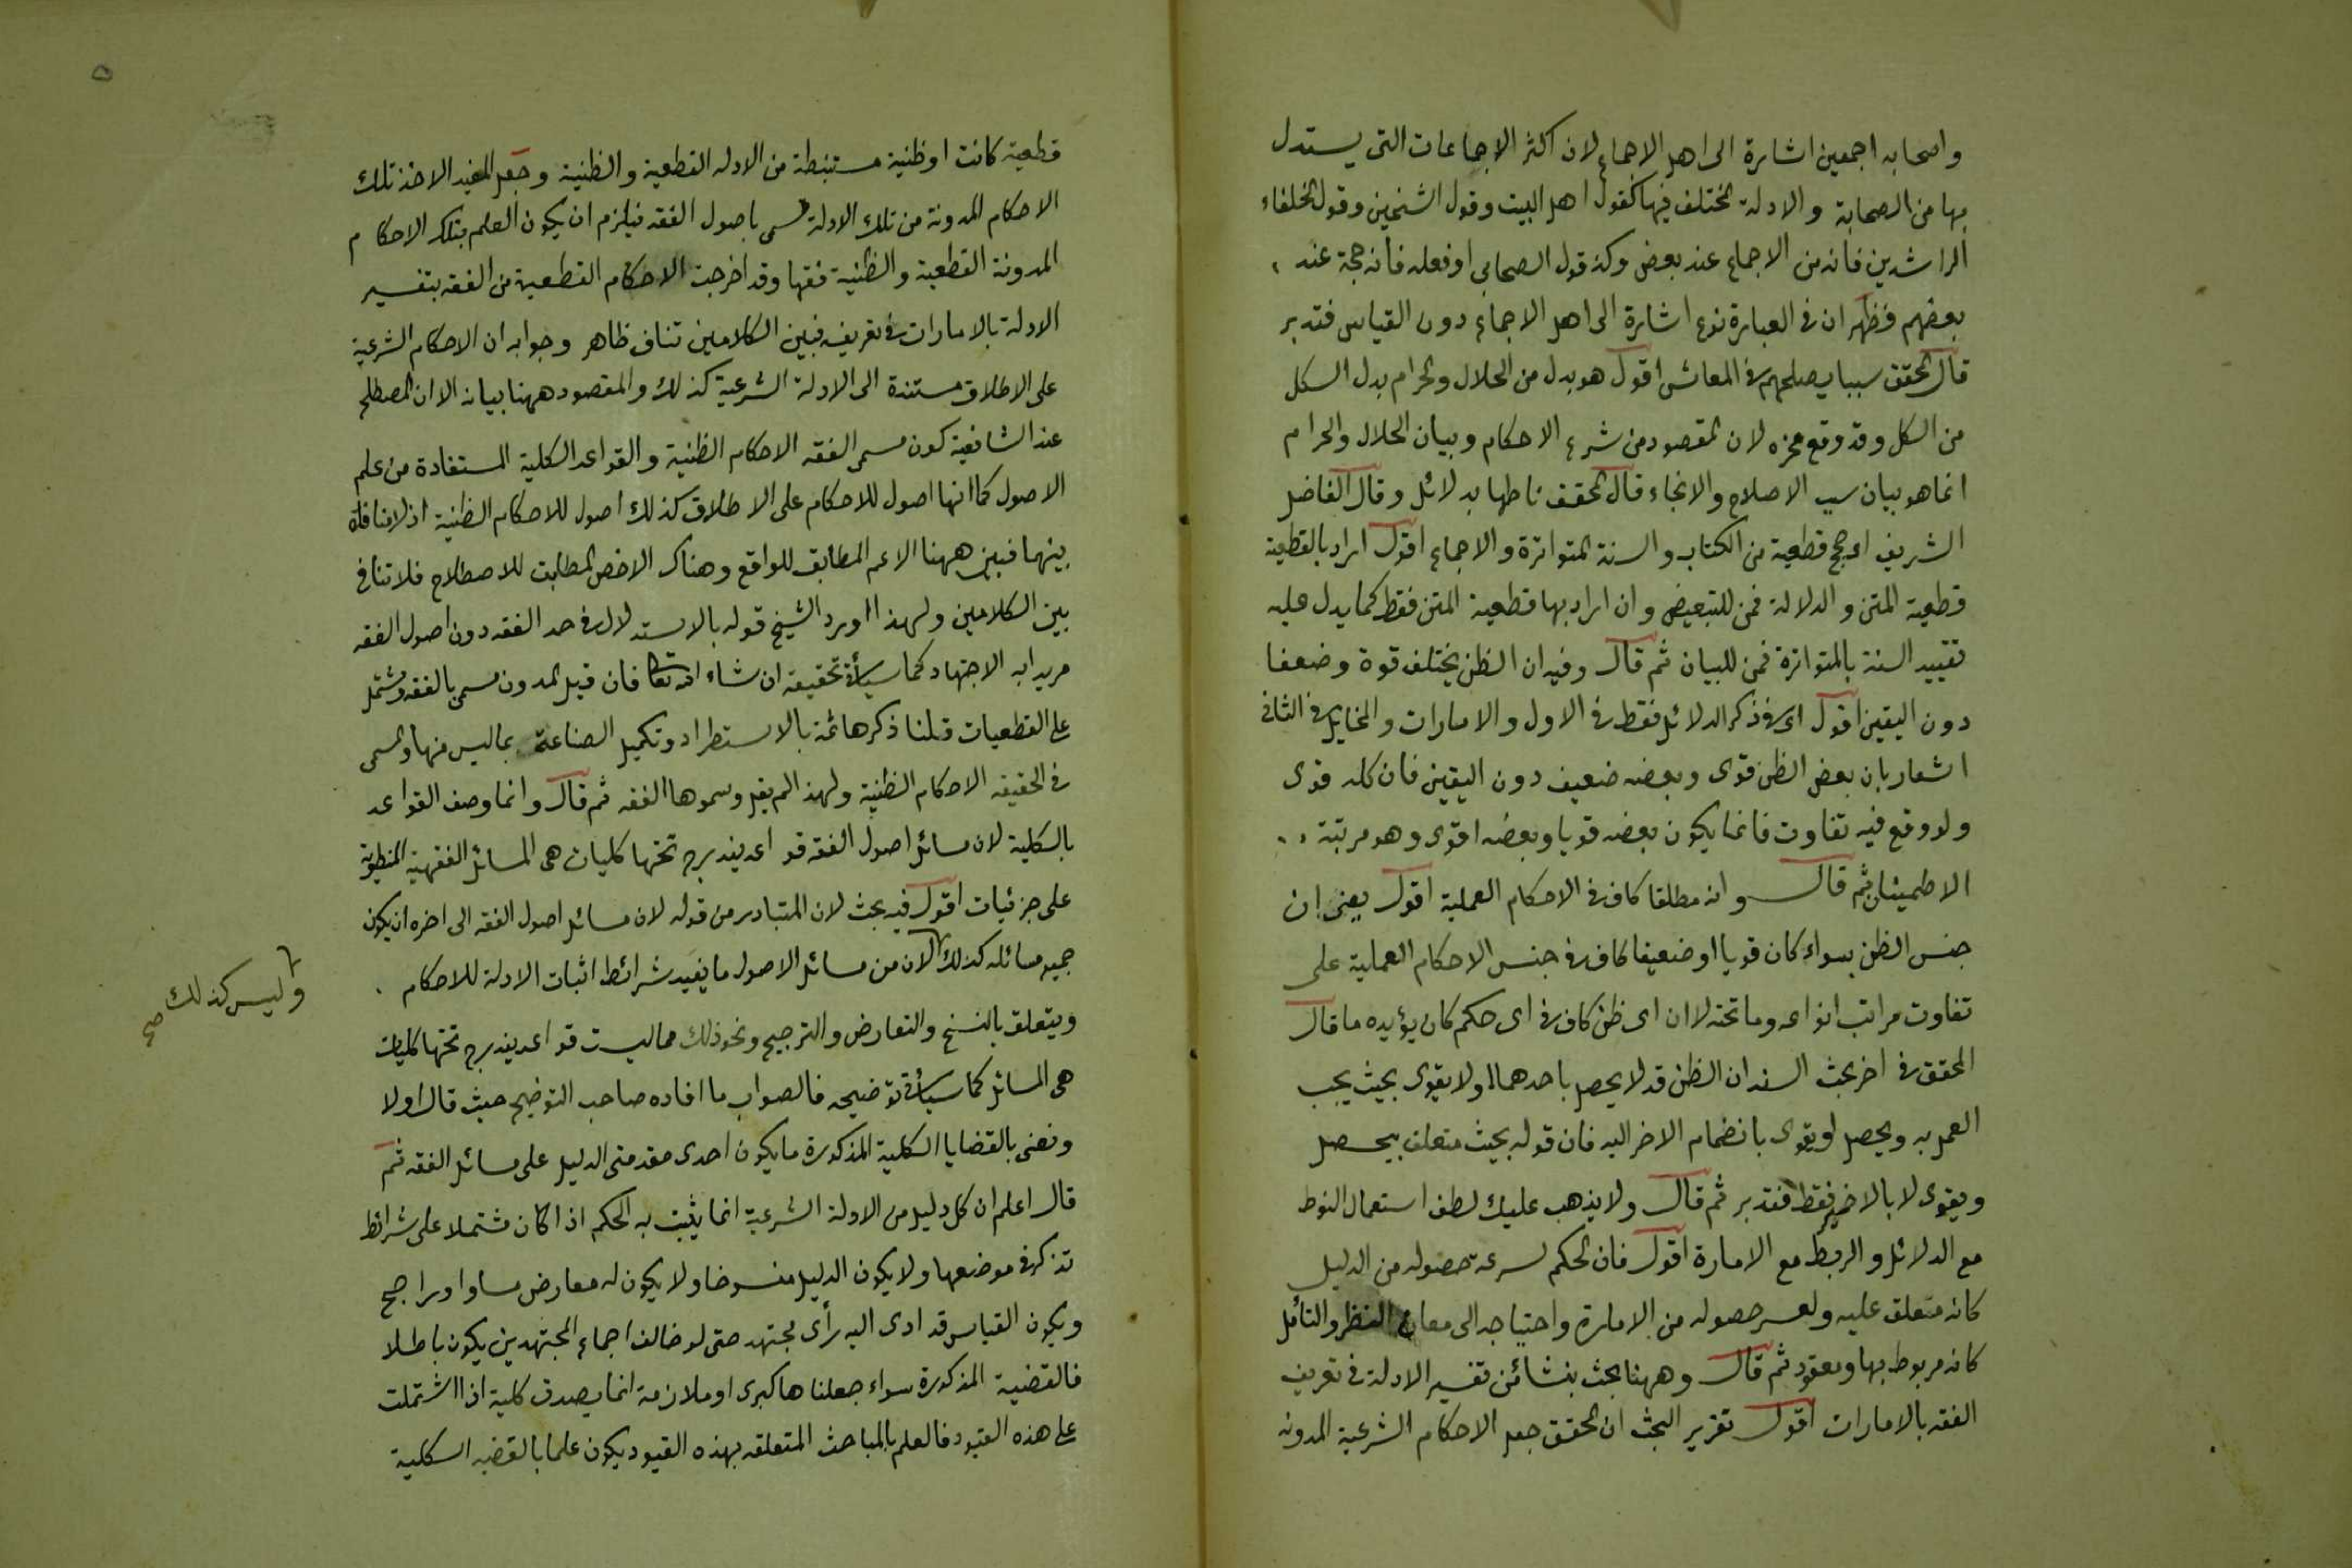 واصحابه اجمعين اشارة الى اهل الاجماع لان اكثر الاجماعات التى يستدل
بها من الصحابة والادلة المختلف فيها كقول اهل البيت وقول الشيخين وقول الخلفاء
الراشدين فانه من الاجماع عند بعض وكذ قول الصحابى او فعله فانه حجة عند
بعضهم فظهر ان فى العبارة نوع اشارة الى اهل الاجماع دون القياس فتدبر
قال المحقق سببا يصلحهم فى المعاش اقول هو بدل من الحلال والحرام بدل الكل
من الكل وقد وقع محزه لان المقصود من شرع الاحكام وبيان الحلال والحرام
انما هو بيان سبب الاصلاح والانجاء قال المحقق ناطها بدلائل وقال الفاضل
الشريف اى حجج قطعية من الكتاب والسنة المتواترة والاجماع اقول اراد بالقطعية
قطعية المتن والدلالة فمن للتبعيض وان اراد بها قطعية المتن فقط كما يدل عليه
تقييد السنة بالمتواترة فمن للبيان ثم قال وفيه ان الظن يختلف قوة وضعفا
دون اليقين اقول اى فى ذكر الدلائل فقط فى الاول والامارات والمخايل فى الثانى
اشعار بان بعض الظن قوى وبعضه ضعيف دون اليقين فان كله قوى
ولو وقع فيه تفاوت فانما يكون بعضه قويا وبعضه اقوى وهو مرتبة
الاطمينان ثم قال وانه مطلقا كاف فى الاحكام العملية اقول يعنى ان
جنس الظن سواء كان قويا او ضعيفا كاف فى جنس الاحكام العملية على
تفاوت مراتب انواعه وما تحته لا ان اى ظن كاف فى اى حكم كان يؤيده ما قال
المحقق فى اخر بحث السند ان الظن قد لا يحصل باحدهما او لا يقوى بحيث يجب
العمل به ويحصل او يقوى بانضمام الاخر اليه فان قوله بحيث متعلق بيحصل
ويقوى لا بالاخير فقط فتدبر ثم قال ولا يذهب عليك لطف استعمال النوط
مع الدلائل والربط مع الامارة اقول فان الحكم لسرعة حصوله من الدليل
كانه متعلق عليه ولعسر حصوله من الامارة واحتياجه الى معان النظر والتأمل
كانه مربوط بها ومعقود ثم قال وههنا بحث بنشأ من تفسير الادلة فى تعريف
الفقه بالامارات اقول تقرير البحث ان المحقق جعل الاحكام الشرعية المدونه
قطعية كانت او ظنية مستنبطة من الادله القطعية والظنية وجعل المفيد لاخذ تلك
الاحكام المدونة من تلك الادلة مسمى باصول الفقه فيلزم ان يكون العلم بتلك الاحكام
المدونة القطعية والظنية فقها وقد اخرجت الاحكام القطعية من الفقه بتفسير
الادلة بالامارات فى تعريفه فبين الكلامين تناف ظاهر وجوابه ان الاحكام الشرعية
على الاطلاق مستندة الى الادلة الشرعية كذلك والمقصود ههنا بيانه الا ان المصطلح
عند الشافعية كون مسمى الفقه الاحكام الظنية والقواعد الكلية المستفادة من علم
الاصول كما انها اصول للاحكام على الاطلاق كذلك اصول للاحكام الظنية اذ لا منافاة
بينهما فبين ههنا الاعم المطابق للواقع وهناك الاخص المطابق للاصطلاح فلا تنافى
بين الكلامين ولهذا اورد الشيخ قوله بالاستدلال فى حد الفقه دون اصول الفقه
مريدا به الاجتهاد كما سيأتى تحقيقه ان شاء الله تعالى فان قيل المدون مسمى بالفقه ويشتمل
على القطعيات قلنا ذكرها ثمة بالاستطراد وتكميل الصناعة بما ليس منها والمسمى
فى الحقيقه الاحكام الظنية ولهذا لم يقل وسموها الفقه ثم قال وانما وصف القواعد
بالكلية لان مسائل اصول الفقه قواعد يندرج تحتها كليات هى المسائل الفقهية المنطوية
على جزئيات اقول فيه بحث لان المتبادر من قوله لان مسائل اصول الفقه الى اخره ان يكون
جميع مسائله كذلك لان من مسائل الاصول ما يفيد شرائط اثبات الادلة للاحكام
وليس كذلك صح
ويتعلق بالنسخ والتعارض والترجيح ونحو ذلك مما ليست قواعد يندرج تحتها كليات
هى المسائل كما سيأتى توضيحه فالصواب ما افاده صاحب التوضيح حيث قال اولا
ونعنى بالقضايا الكلية المذكورة ما يكون احدى مقدمتى الدليل على مسائل الفقه ثم
قال اعلم ان كل دليل من الادلة الشرعية انما يثبت به الحكم اذا كان مشتملا على شرائط
تذكر فى موضعها ولا يكون الدليل منسوخا ولا يكون له معارض مساو او راجح
ويكون القياس قد ادى اليه رأى مجتهد حتى لو خالف اجماع المجتهدين يكون باطلا
فالقضية المذكورة سواء جعلناها كبرى او ملازمة انما يصدق كلية اذا اشتملت
على هذه القيود فالعلم بالمباحث المتعلقه بهذه القيود يكون علما بالقضيه الكلية